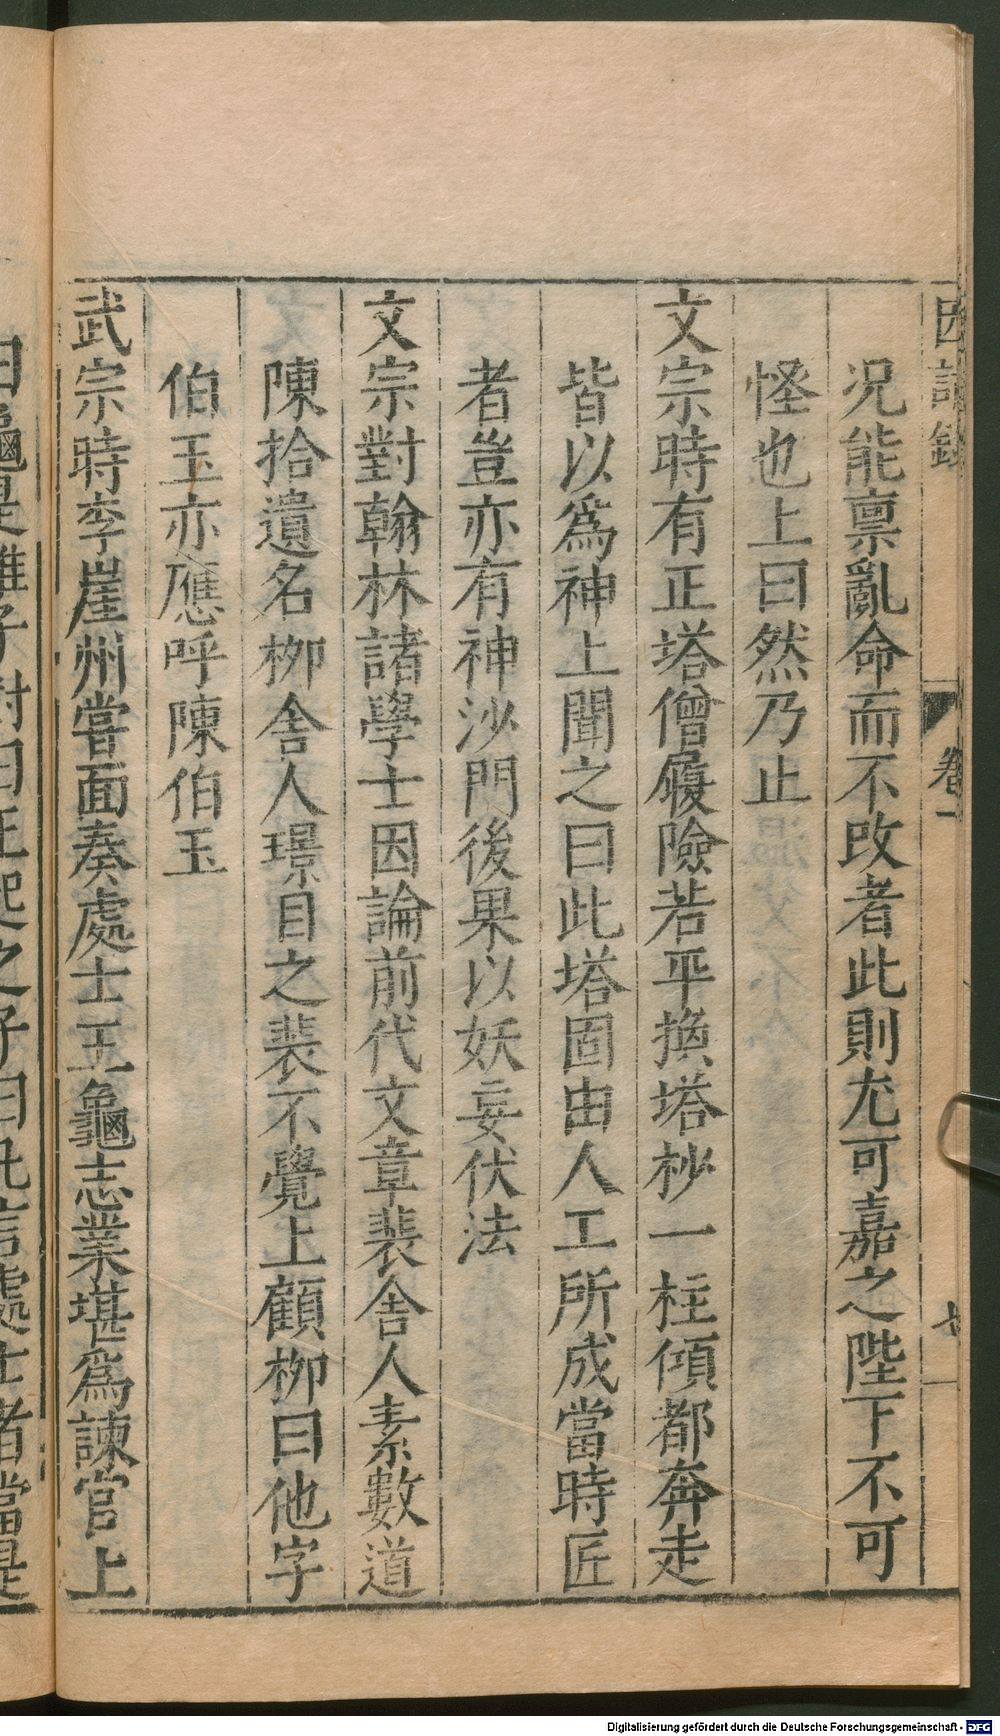 因話錄 卷一 七
况能禀亂命而不改者此則尤可嘉之陛下不可
怪也上曰然乃止
文宗時有正塔僧履險若平換塔杪一柱傾都奔走
皆以爲神上聞之曰此塔固由人工所成當時匠
者豈亦有神沙門後果以妖妄伏法
文宗對翰林諸學士因論前代文章裴舍人素數道
陳拾遺名柳舍人璟目之裴不覺上顧柳曰他字
伯玉亦應呼陳伯玉
武宗時李崖州嘗面奏處士王龜志業堪爲諫官上
曰龜是誰子對曰王起之子曰凡言處士者當是
Digitalisierung gefördert durch die Deutsche Forschungsgemeinschaft - DFG